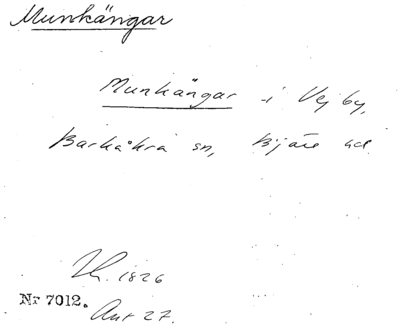 Munkängar
Munkängar i Vejby,
Barkåkra sn, Bjäre hd.
1826
Nr 7012.
Ant 27.